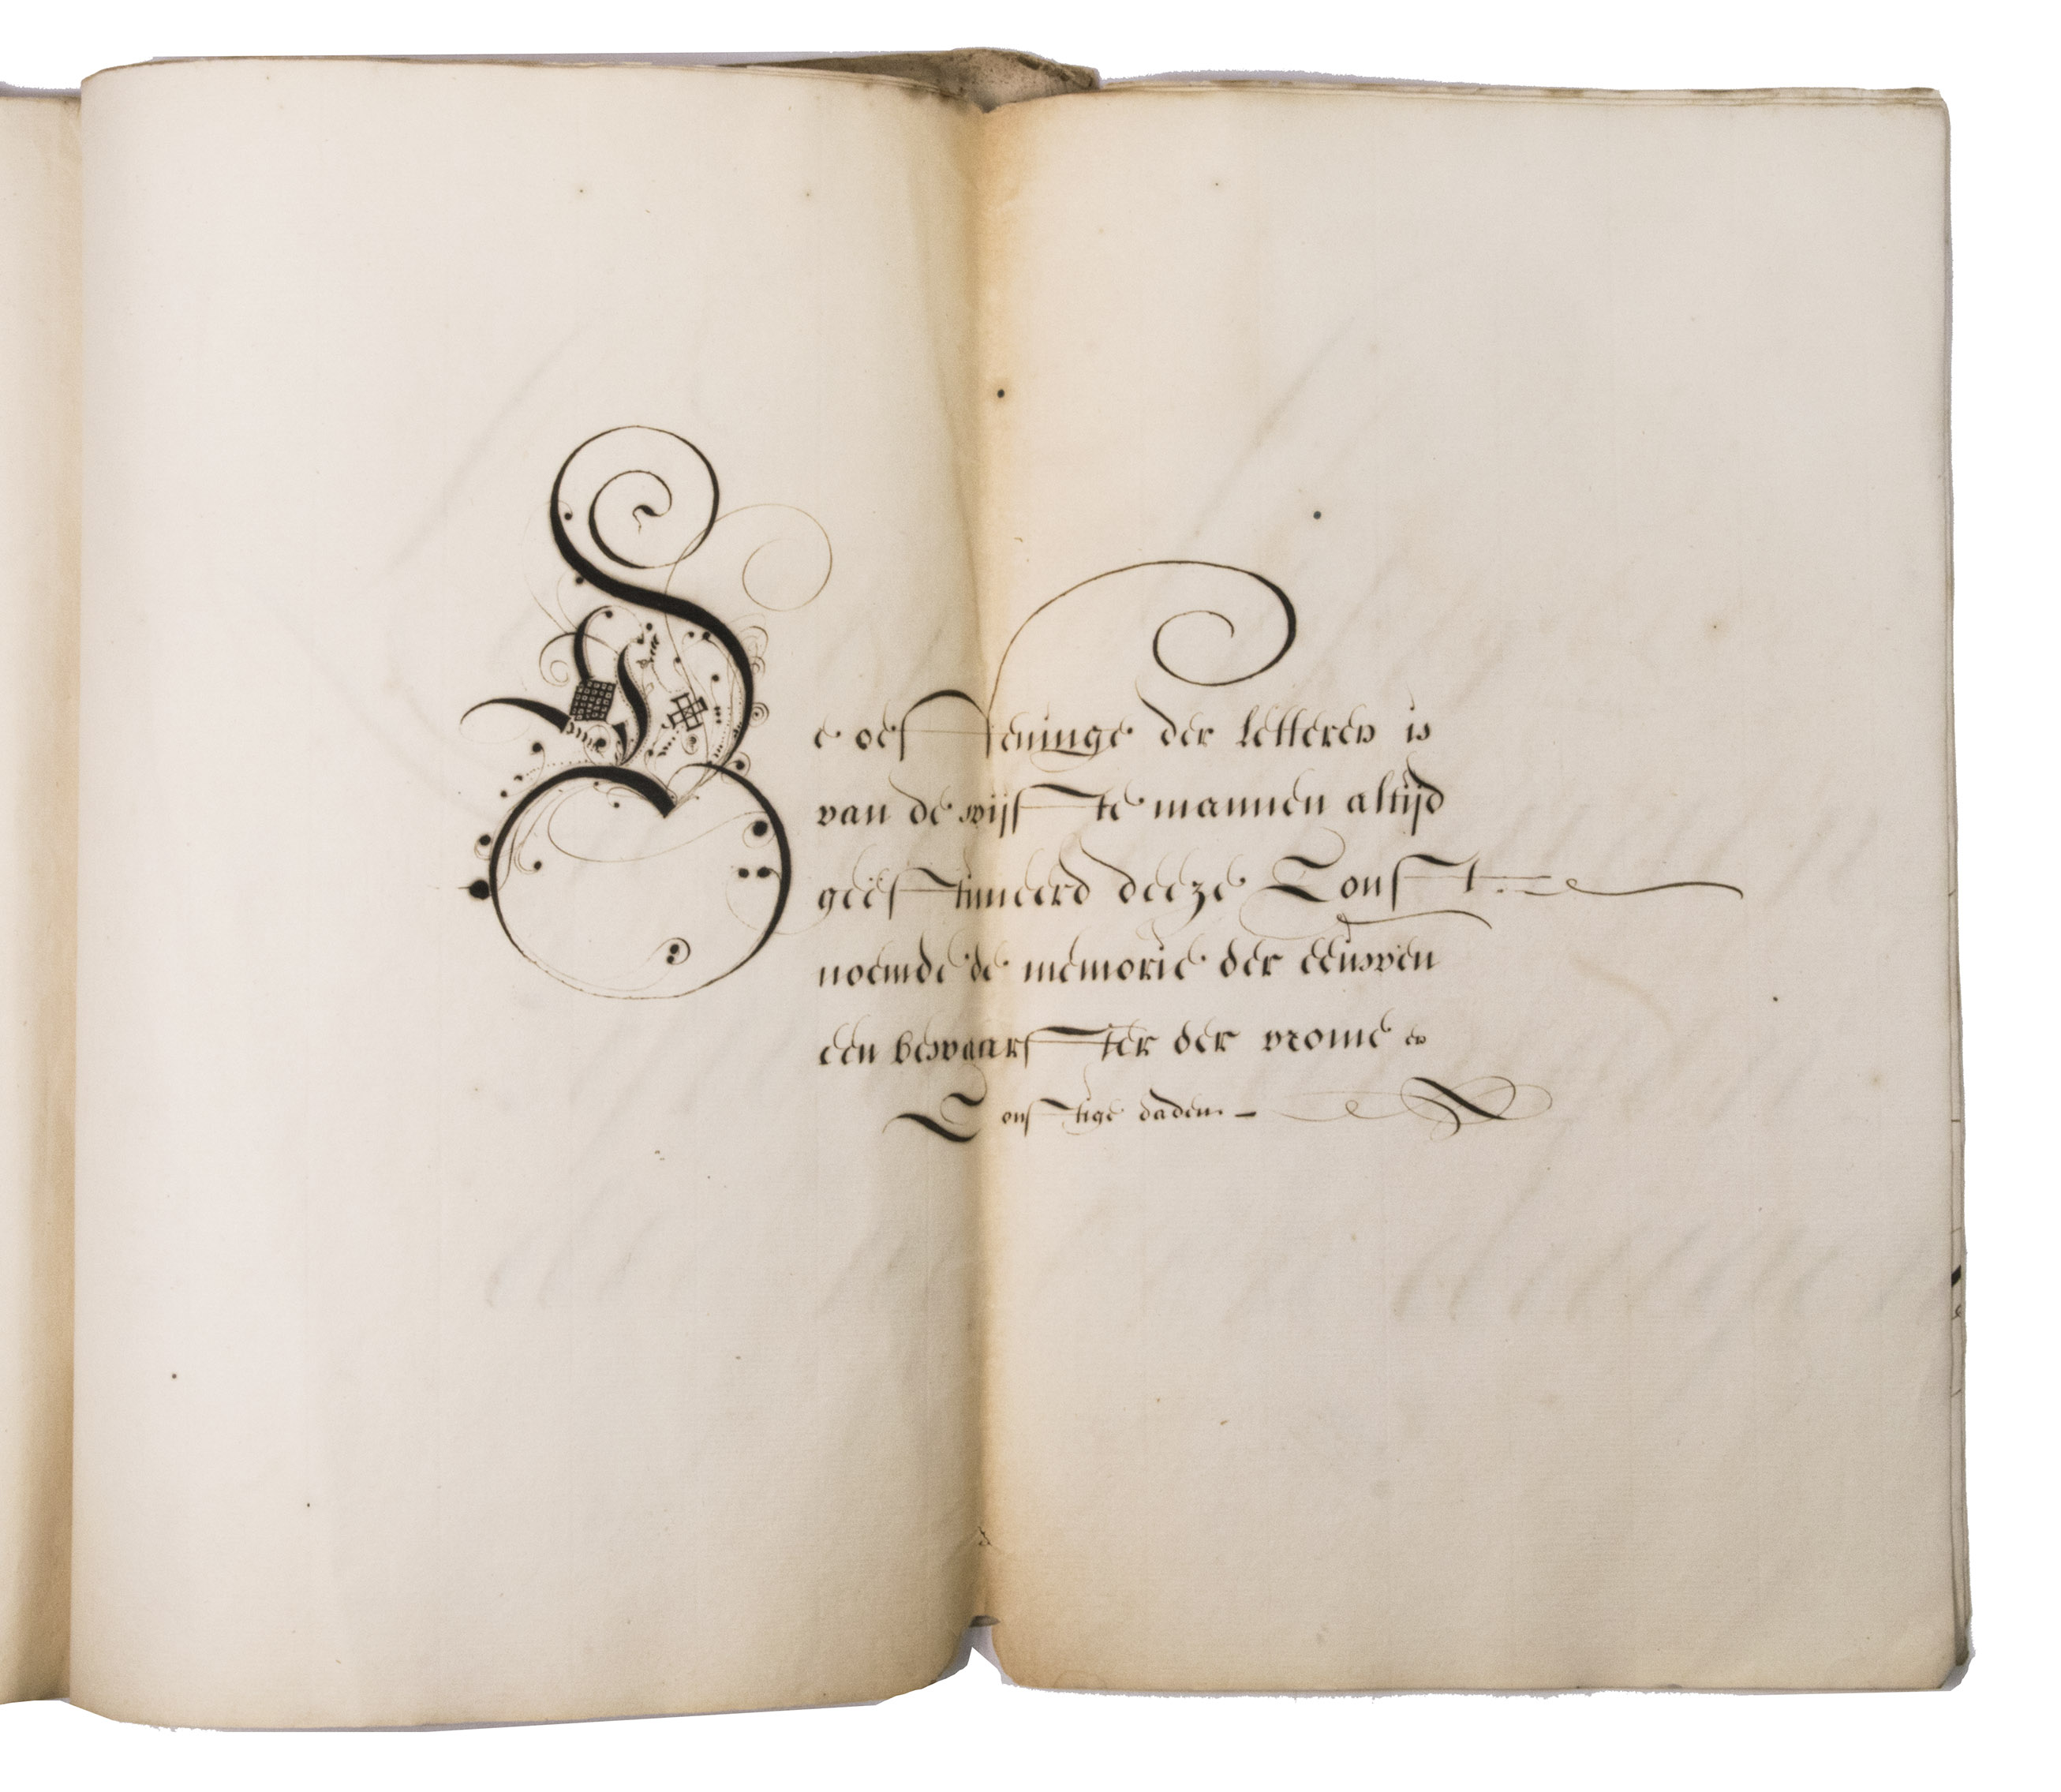 De oeffeninge der letteren is
van de wijste mannen altijd
geëstimeerd deeze Const
noemde de memorie der eeuwen
een bewaarster der vrome en
Constige daden